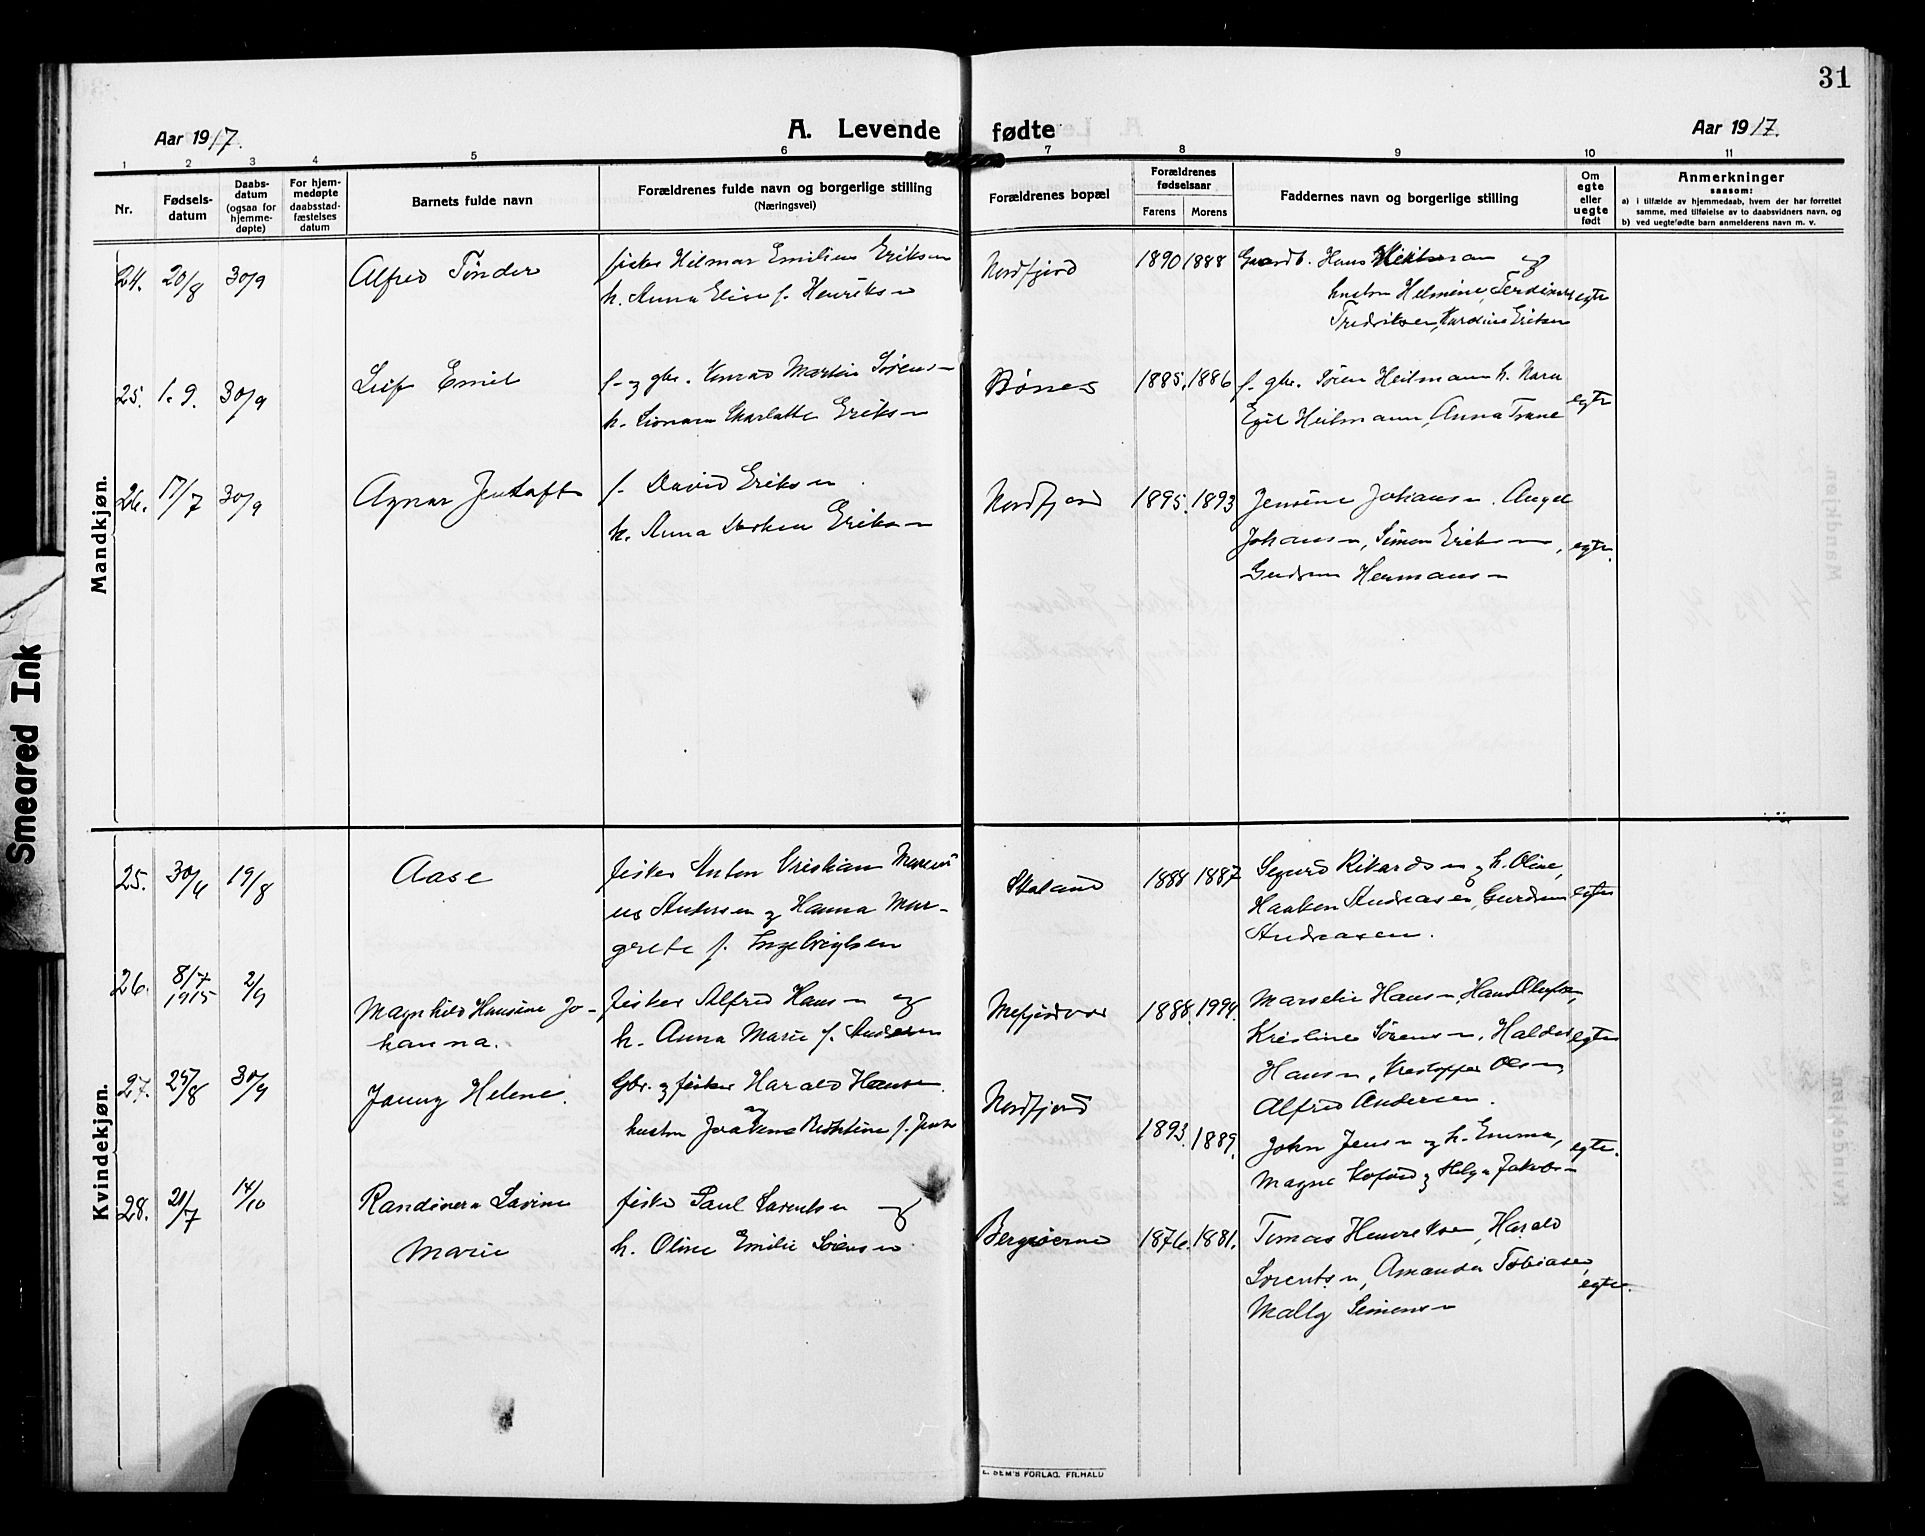 31
Aar 1917.
A. Levende fødte
Aar 1917.
1 2 3 4 5 6 7 8 9 10 11
Nr.
Fødsels-
datum
Daabs-
datum
(ogsaa for
hjemme-
døpte)
For hjem-
medøpte
daabsstad-
fæstelses
datum
Barnets fulde navn
Forældrenes fulde navn og borgerlige stilling
(Næringsvei)
Forældrenes bopæl
Forældrenes
fødselsaar
Farens Morens
Faddernes navn og borgerlige stilling
Om
egte
eller
uegte
født
Anmerkninger
saasom:
a) i tilfælde av hjemmedaab, hvem der har forrettet
samme, med tilføielse av to daabsvidners navn, og
b) ved uegtefødte barn anmelderens navn m. v.
Mandkjøn.
24. 20/8 30/9 Alfred Tønder
fisker Hilmar Emilius Eriksen
h. Anna Elise f. Henriksen
Nordfjord 1890 1888
Gaardb. Hans Heitman og
hustru Helmine, Ferdinand
Fredriksen, Kardine Eriksen
egte
25. 1.9. 30/9 Leif Emil
f. og gbr. Konrad Martin Sørensen
h. Leonara Charlotte Eriksen
Bønes 1885. 1886
f. gbr. Sören Heitmann h. Nara
Egil Heitmann, Anna Trane
egte
26. 17/7 30/9 Agnar Jentoft
f. David Eriksen.
h. Anna Eriksen
Nordfjord 1895. 1893
Jensine Johansen. Angel
Johansen, Simon Eriksen,
Gudrun Hermansen
egte.
Kvindekjøn.
25. 30/4 19/8 Aase
fisker Anton Kristian Mareni
us Andersen og Hanna Mar-
grete f. Ingebrigtsen
Skaland 1888 1887
Sigurd Rikardsen og h. Oline,
Haakon Andreasen, Gurdrun
Andreasen.
egte
26. 8/7 1915 2/9
Magnhild Hansine Jo-
hanna.
fisker Alfred Hansen og
h. Anna Marie f. Andersen
Mefjordvær 1888. 1994.
Marselie Hansen, Hans Olufsen,
Kristine Sørensen, Haldor
Hansen, Kristoffer Olsen,
Alfred Andersen.
egte
27. 25/8 30/9 Jenny Helene.
Gbr. og fisker Harald Hansen.
hustru f. Jensen
Nordfjord
1893. 1889.
John Jensen og h. Emma,
Magne Kofoed og Helga Jakobsen
egte.
28. 21/7 14/10 Randinera Lavine
Marie
fisker Paul Lorentsen og
h. Oline Emilie Sørensen.
Bergsøerne 1876. 1881.
Tomas Henriksen, Harald
Lorentsen, Amanda Tobiasen,
Mally Simonsen
egte.
E. SEM'S FORLAG. FR.HALD
Smeared Ink